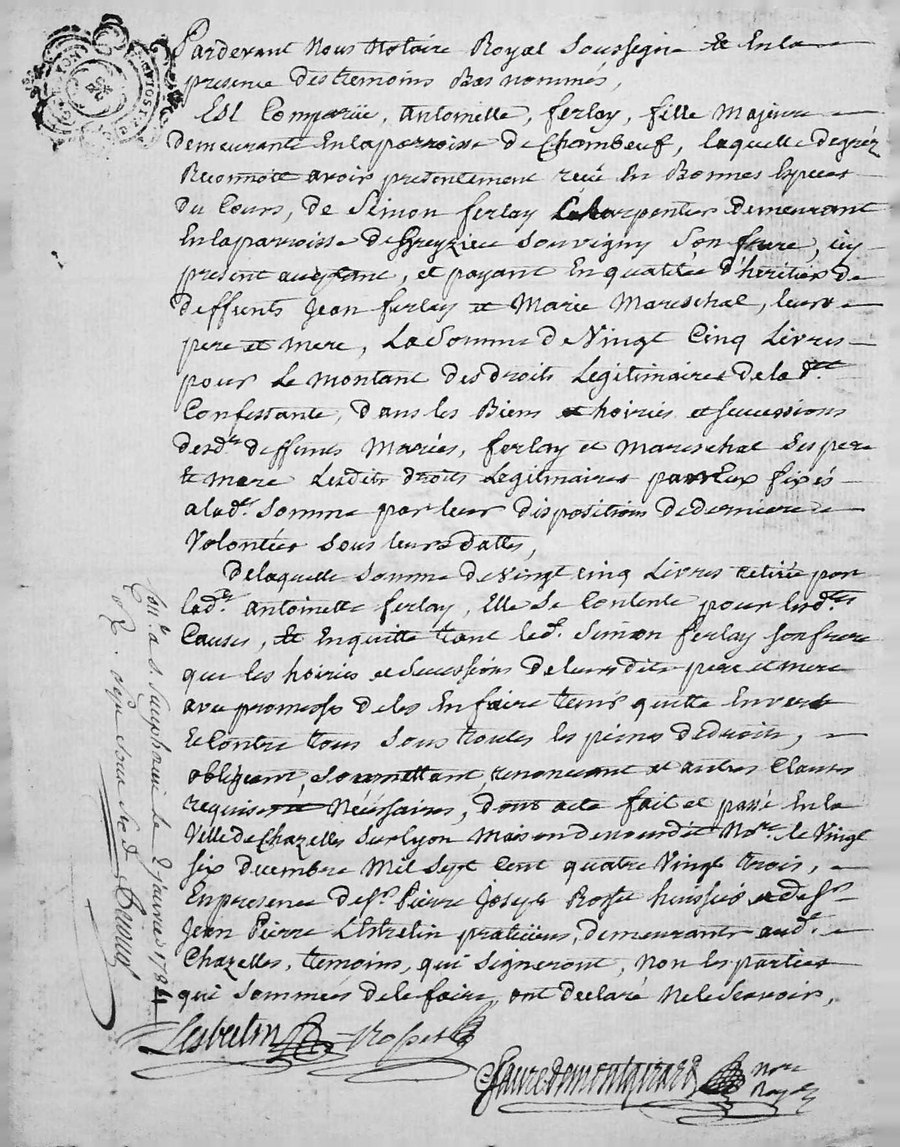 Pardevant Nous Notaire Royal Soussigné Et Enla
presence Destemoins Bas nommés,
Est Comparüe, Antoinette, ferlay, fille Majeure
demeurante Enlaparroisse de Chambeuf, laquelle degréz
Reconnoit avoir presentement recû En Bonnes Especes
du Cours, de Simon ferlay Charpentier Demeurant
Enlaparroisse de Greyzieu Souvigny Son frere, icy
present acceptant, et payant En qualitée d'héritier de
deffunts Jean ferlay et Marie Mareschal, leurs
pere et mere, La Somme de Vingt Cinq Livres
pour Le montant des droits Légitimaires Delad.te
Confessante, dans les Biens et hoiries et successions
desd.ts deffunts Mariés, ferlay et Mareschal Ses pere
et mere Lesdits droits Légitimaires par Eux fixés
alad.te Somme par leur dispositions de derniere
Volontées Sous leurs dattes,
Delaquelle Somme de Vingt cinq Livres retirée par
lad.te Antoinette ferlay, Elle Se Contente pour lesd.tes
Causes, Et Enquitte tant led.t Simon ferlay Son frere
que les hoiries et Successions de leursdits pere et mere
avec promesse de les En faire tenir quitte Envers
Et Contre tous Sous toutes les peines de droit,
obligeant, Soumettant, renonceant et autres Clauses
requises et Nécéssaires, Dont acte fait et passé Enla
Ville de Chazelles Surlyon Maison denousdit No.re le Vingt
Six decembre Mil Sept Cent quatre Vingt trois,
Enpresence de S.r Pierre Joseph Rosse huissier et de S.r
Jean Pierre Lestrelin praticien, demeurants aud.t
Chazelles, temoins, qui Signeront, Non les parties
qui Sommées de le faire, ont déclaré Nele Scavoir,
Faure demontgirard No.re
Royal
Con.lé a S. Simphorien le 2 janvier 1784